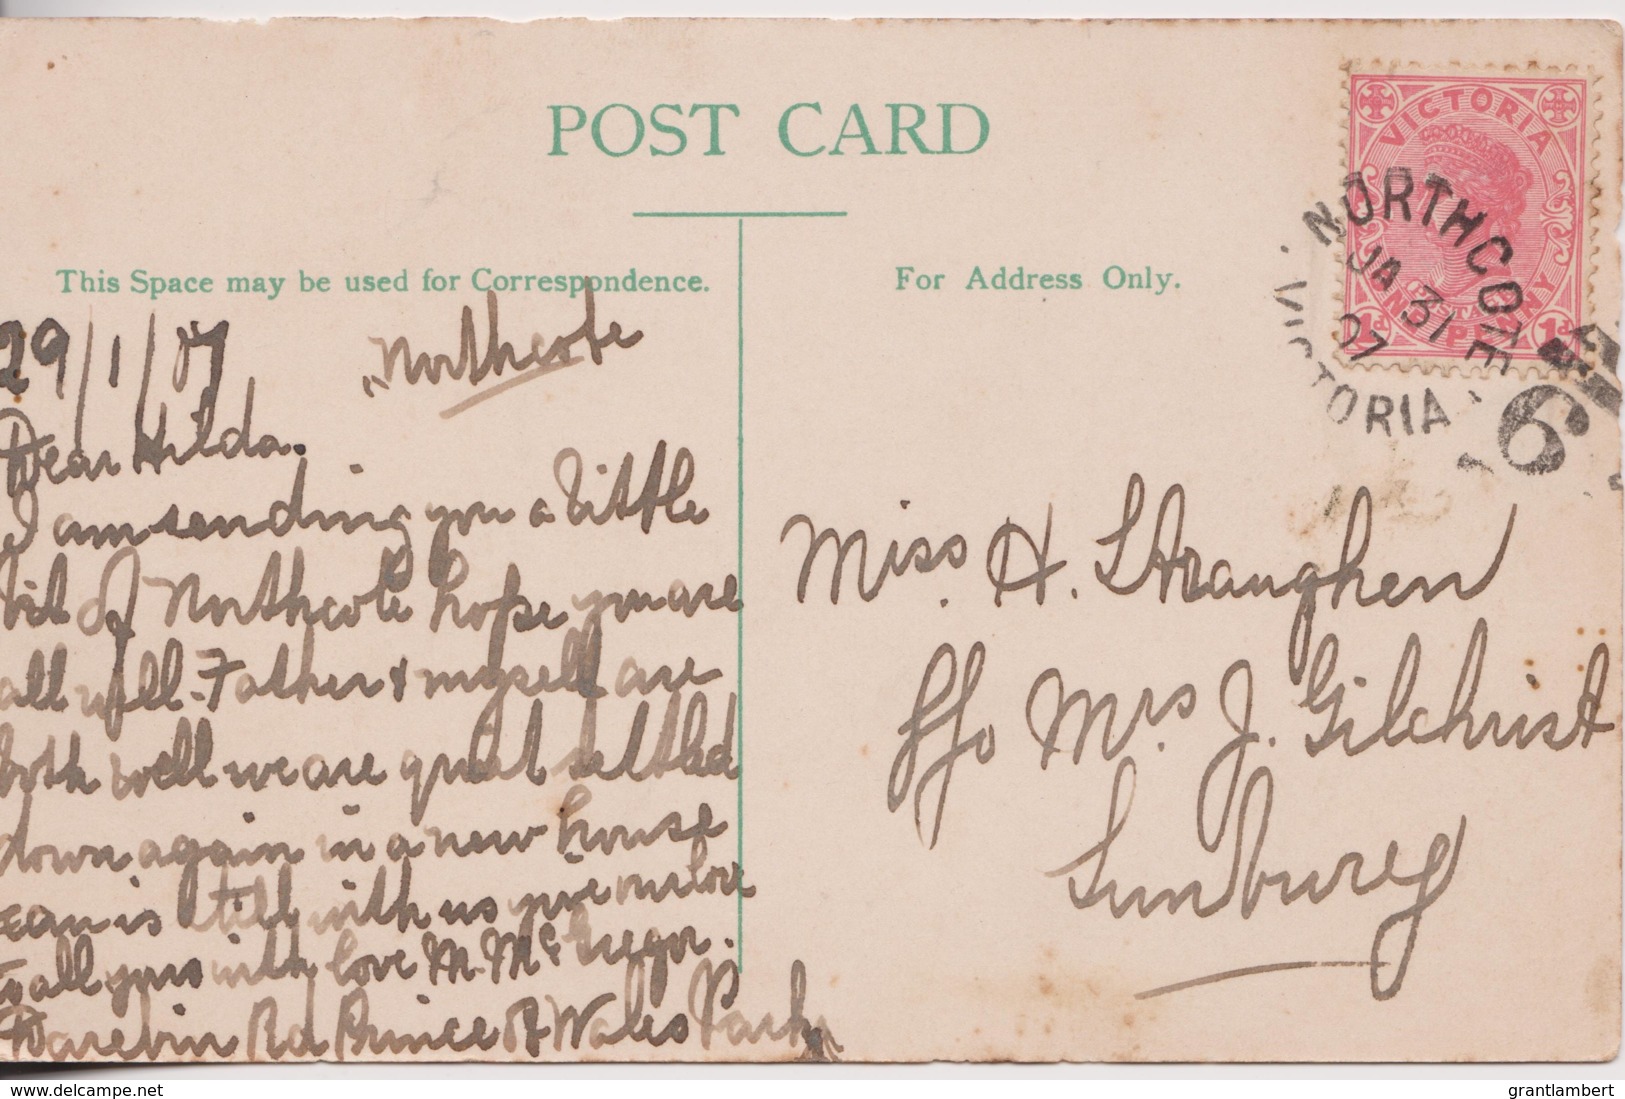 POST CARD
This Space may be used for Correspondence.
For Address Only.
29/1/07 "Northcote
Dear Hilda.
I am sending you a little
bit of Northcote hope you are
all well. Father & myself are
both well we are quiet settled
down again in a new house
Jean is still with us give our love
to all yours with love M. McGregor.
Darebin Rd Prince of Wales Park
Miss. H. Straughen
c/o Mrs. J. Gilchrist
Sunburry
VICTORIA
ONE PENNY
1d 1d
NORTHCOTE
JA 31
07
VICTORIA
6
www.delcampe.net
grantlambert